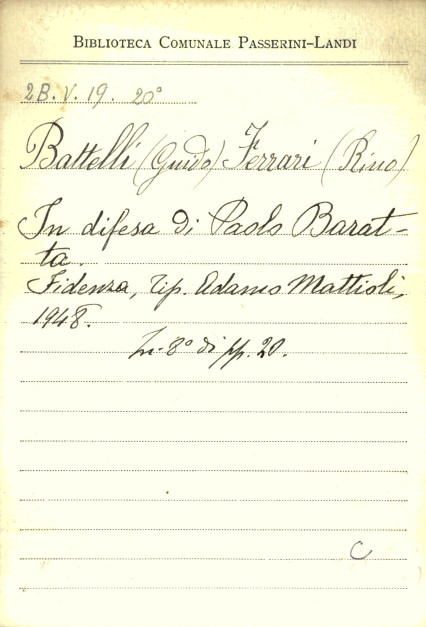 BIBLIOTECA COMUNALE PASSERINI-LANDI
2B.V.19. 20°
Battelli (Guido) Ferrari (Rino)
In difesa di Paolo Barat-
ta.
Fidenza, Tip. Adamo Mattioli,
1948.
In-8° di pp. 20.
C